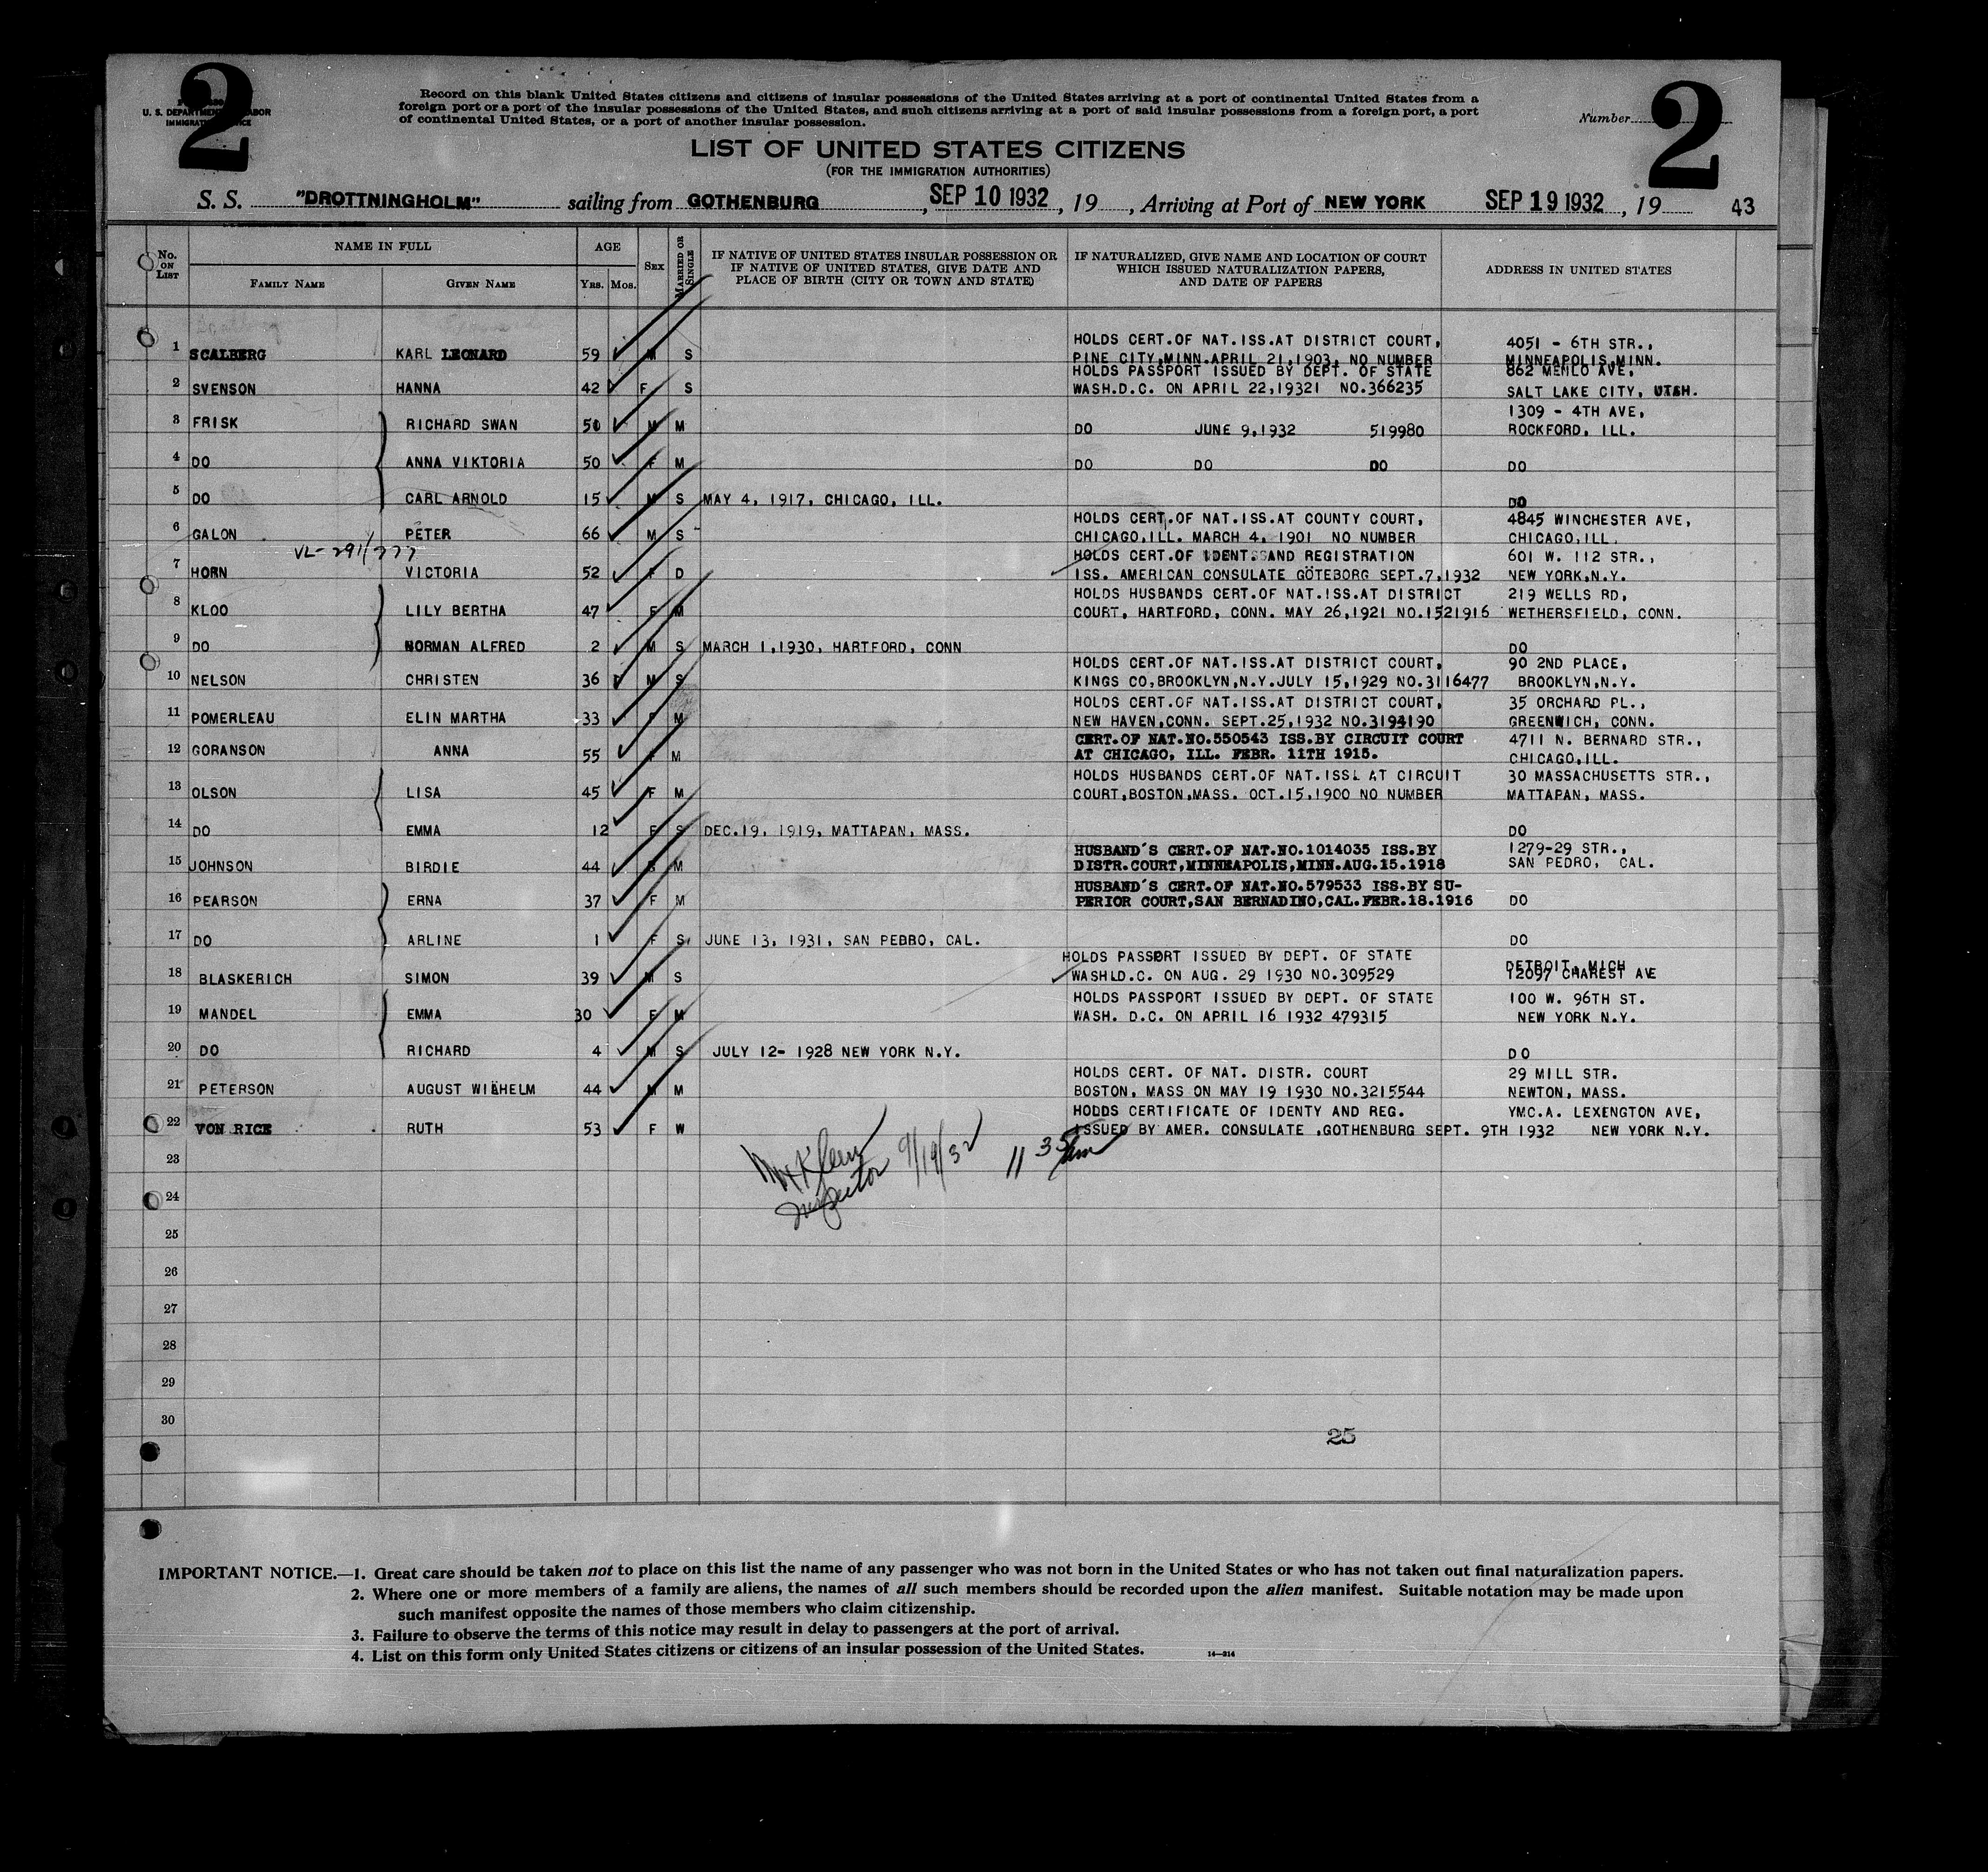 2
2
U. S. DEPARTMENT OF LABOR
IMMIGRATION SERVICE
Record on this blank United States citizens and citizens of insular possessions of the United States arriving at a port of continental United States from a
foreign port or a port of the insular possessions of the United States, and such citizens arriving at a port of said insular possessions from a foreign port, a port
of continental United States, or a port of another insular possession.
Number
LIST OF UNITED STATES CITIZENS
(FOR THE IMMIGRATION AUTHORITIES)
S. S. "DROTTNINGHOLM" sailing from GOTHENBURG, SEP 10 1932, 19 , Arriving at Port of NEW YORK SEP 19 1932, 19 43
No. ON LIST NAME IN FULL FAMILY NAME GIVEN NAME AGE YRS. MOS. SEX MARRIED OR SINGLE IF NATIVE OF UNITED STATES INSULAR POSSESSION OR IF NATIVE OF UNITED STATES, GIVE DATE AND PLACE OF BIRTH (CITY OR TOWN AND STATE) IF NATURALIZED, GIVE NAME AND LOCATION OF COURT WHICH ISSUED NATURALIZATION PAPERS, AND DATE OF PAPERS ADDRESS IN UNITED STATES
HOLDS CERT.OF NAT.ISS.AT DISTRICT COURT, 4051 - 6TH STR.,
1 SCALBERG KARL LEONARD 59 M S PINE CITY,MINN.APRIL 21,1903, NO NUMBER MINNEAPOLIS,MINN.
HOLDS PASSPORT ISSUED BY DEPT. OF STATE 862 MENLO AVE,
2 SVENSON HANNA 42 F S WASH.D.C. ON APRIL 22,19321 NO.366235 SALT LAKE CITY, UTAH.
1309 - 4TH AVE,
3 FRISK RICHARD SWAN 50 M M DO JUNE 9,1932 519980 ROCKFORD, ILL.
4 DO ANNA VIKTORIA 50 F M DO DO DO DO
5 DO CARL ARNOLD 15 M S MAY 4, 1917, CHICAGO, ILL. DO
HOLDS CERT.OF NAT.ISS.AT COUNTY COURT, 4845 WINCHESTER AVE,
6 GALON PETER 66 M S CHICAGO,ILL. MARCH 4, 1901 NO NUMBER CHICAGO,ILL.
VL-291/777 HOLDS CERT.OF IDENT. AND REGISTRATION 601 W. 112 STR.,
7 HORN VICTORIA 52 F D ISS. AMERICAN CONSULATE GÖTEBORG SEPT.7,1932 NEW YORK,N.Y.
HOLDS HUSBANDS CERT.OF NAT.ISS.AT DISTRICT 219 WELLS RD,
8 KLOO LILY BERTHA 47 F M COURT, HARTFORD, CONN. MAY 26,1921 NO.1521916 WETHERSFIELD, CONN.
9 DO NORMAN ALFRED 2 M S MARCH 1,1930, HARTFORD, CONN DO
HOLDS CERT.OF NAT.ISS.AT DISTRICT COURT, 90 2ND PLACE,
10 NELSON CHRISTEN 36 M S KINGS CO,BROOKLYN,N.Y.JULY 15,1929 NO.3116477 BROOKLYN,N.Y.
HOLDS CERT.OF NAT.ISS.AT DISTRICT COURT, 35 ORCHARD PL.,
11 POMERLEAU ELIN MARTHA 33 F M NEW HAVEN,CONN. SEPT.25,1932 NO.3194190 GREENWICH, CONN.
CERT.OF NAT.NO.550543 ISS.BY CIRCUIT COURT 4711 N. BERNARD STR.,
12 GORANSON ANNA 55 F M AT CHICAGO, ILL. FEBR. 11TH 1915. CHICAGO,ILL.
HOLDS HUSBANDS CERT.OF NAT.ISSL AT CIRCUIT 30 MASSACHUSETTS STR.,
13 OLSON LISA 45 F M COURT,BOSTON,MASS. OCT.15,1900 NO NUMBER MATTAPAN, MASS.
14 DO EMMA 12 F S DEC.19, 1919, MATTAPAN, MASS. DO
HUSBAND'S CERT.OF NAT.NO.1014035 ISS.BY 1279-29 STR.,
15 JOHNSON BIRDIE 44 F M DISTR.COURT,MINNEAPOLIS,MINN.AUG.15.1918 SAN PEDRO, CAL.
HUSBAND'S CERT.OF NAT.NO.579533 ISS.BY SU-
16 PEARSON ERNA 37 F M PERIOR COURT,SAN BERNADINO,CAL.FEBR.18.1916 DO
17 DO ARLINE 1 F S JUNE 13, 1931, SAN PEDRO, CAL. DO
HOLDS PASSPORT ISSUED BY DEPT. OF STATE DETROIT, MICH
18 BLASKERICH SIMON 39 M S WASHLD.C. ON AUG. 29 1930 NO.309529 12097 CHAREST AVE
HOLDS PASSPORT ISSUED BY DEPT. OF STATE 100 W. 96TH ST.
19 MANDEL EMMA 30 F M WASH. D.C. ON APRIL 16 1932 479315 NEW YORK N.Y.
20 DO RICHARD 4 M S JULY 12- 1928 NEW YORK N.Y. DO
HOLDS CERT. OF NAT. DISTR. COURT 29 MILL STR.
21 PETERSON AUGUST WILHELM 44 M M BOSTON, MASS ON MAY 19 1930 NO.3215544 NEWTON, MASS.
HODDS CERTIFICATE OF IDENTY AND REG. YMC.A. LEXENGTON AVE,
22 VON RICE RUTH 53 F W ISSUED BY AMER. CONSULATE ,GOTHENBURG SEPT. 9TH 1932 NEW YORK N.Y.
23
Klein 9/19/32 11 35 am
Inspector
24
25
26
27
28
29
30
25
IMPORTANT NOTICE.—1. Great care should be taken not to place on this list the name of any passenger who was not born in the United States or who has not taken out final naturalization papers.
2. Where one or more members of a family are aliens, the names of all such members should be recorded upon the alien manifest. Suitable notation may be made upon
such manifest opposite the names of those members who claim citizenship.
3. Failure to observe the terms of this notice may result in delay to passengers at the port of arrival.
4. List on this form only United States citizens or citizens of an insular possession of the United States. 14—214